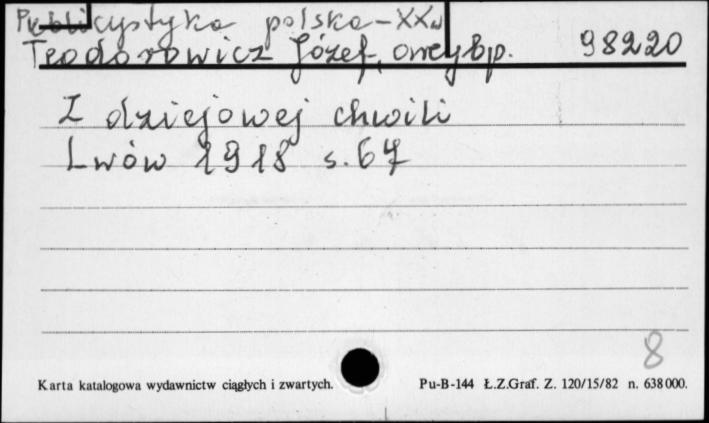 Publicystyka polska - XX w
Teodorowicz Józef, arcybp. 98220
Z dziejowej chwili
Lwów 1918 s. 67
8
Karta katalogowa wydawnictw ciągłych i zwartych. Pu-B-144 Ł.Z.Graf. Z. 120/15/82 n. 638000.